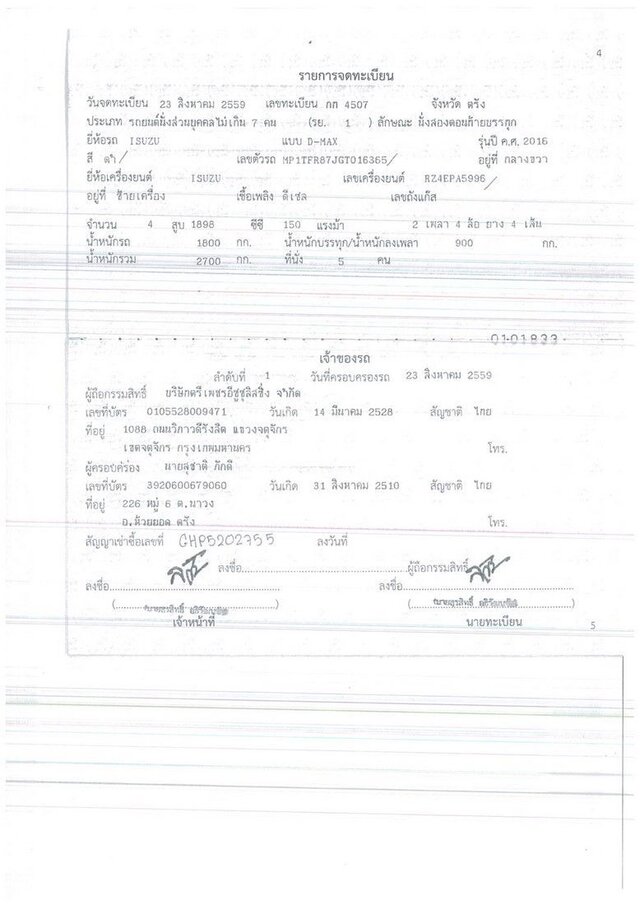 4
รายการจดทะเบียน
วันจดทะเบียน 23 สิงหาคม 2559 เลขทะเบียน กก 4507 จังหวัด ตรัง
ประเภท รถยนต์นั่งส่วนบุคคลไม่เกิน 7 คน (รย. 1 ) ลักษณะ นั่งสองตอนท้ายบรรทุก
ยี่ห้อรถ ISUZU แบบ D-MAX รุ่นปี ค.ศ. 2016
สี ดำ/ เลขตัวรถ MP1TFR87JGT016365/ อยู่ที่ กลางขวา
ยี่ห้อเครื่องยนต์ ISUZU เลขเครื่องยนต์ RZ4EPA5996 /
อยู่ที่ ซ้ายเครื่อง เชื้อเพลิง ดีเซล เลขถังแก๊ส
จำนวน 4 สูบ 1898 ซีซี 150 แรงม้า 2 เพลา 4 ล้อ ยาง 4 เส้น
น้ำหนักรถ 1800 กก. น้ำหนักบรรทุก/น้ำหนักลงเพลา 900 กก.
น้ำหนักรวม 2700 กก. ที่นั่ง 5 คน
0101833
เจ้าของรถ
ลำดับที่ 1 วันที่ครอบครองรถ 23 สิงหาคม 2559
ผู้ถือกรรมสิทธิ์ บริษัทตรีเพชรอีซูซุลิสซิ่ง จำกัด
เลขที่บัตร 0105528009471 วันเกิด 14 มีนาคม 2528 สัญชาติ ไทย
ที่อยู่ 1088 ถนนวิภาวดีรังสิต แขวงจตุจักร
เขตจตุจักร กรุงเทพมหานคร โทร.
ผู้ครอบครอง นายสุชาติ ภักดี
เลขที่บัตร 3920600679060 วันเกิด 31 สิงหาคม 2510 สัญชาติ ไทย
ที่อยู่ 226 หมู่ 6 ต.นาวง
อ.ห้วยยอด ตรัง โทร.
สัญญาเช่าซื้อเลขที่ GHP5202755 ลงวันที่
ลงชื่อ ผู้ถือกรรมสิทธิ์
ลงชื่อ ลงชื่อ
( ) ( )
เจ้าหน้าที่ นายทะเบียน
5